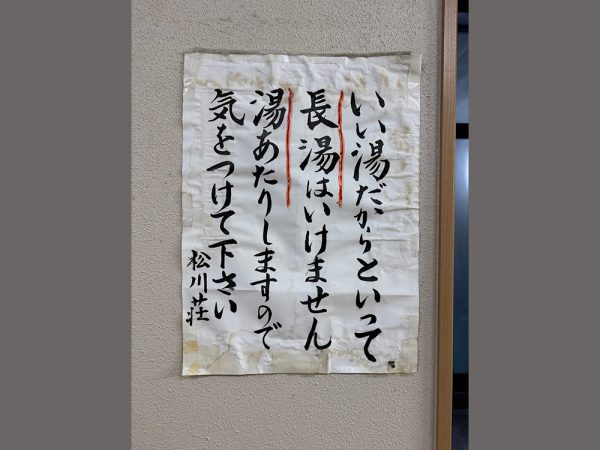 いい湯だからといって
長湯はいけません
湯あたりしますので
気をつけて下さい
松川荘